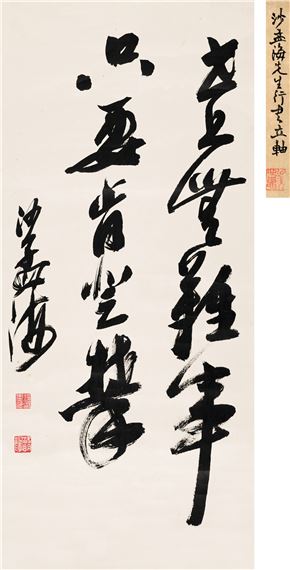 世上無難事
只要肯登攀
沙孟海
沙孟海先生行書立軸